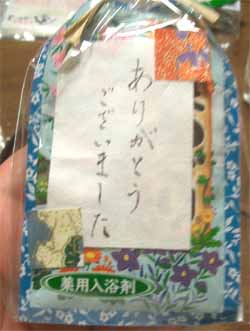 ありがとう
ございました
薬用入浴剤